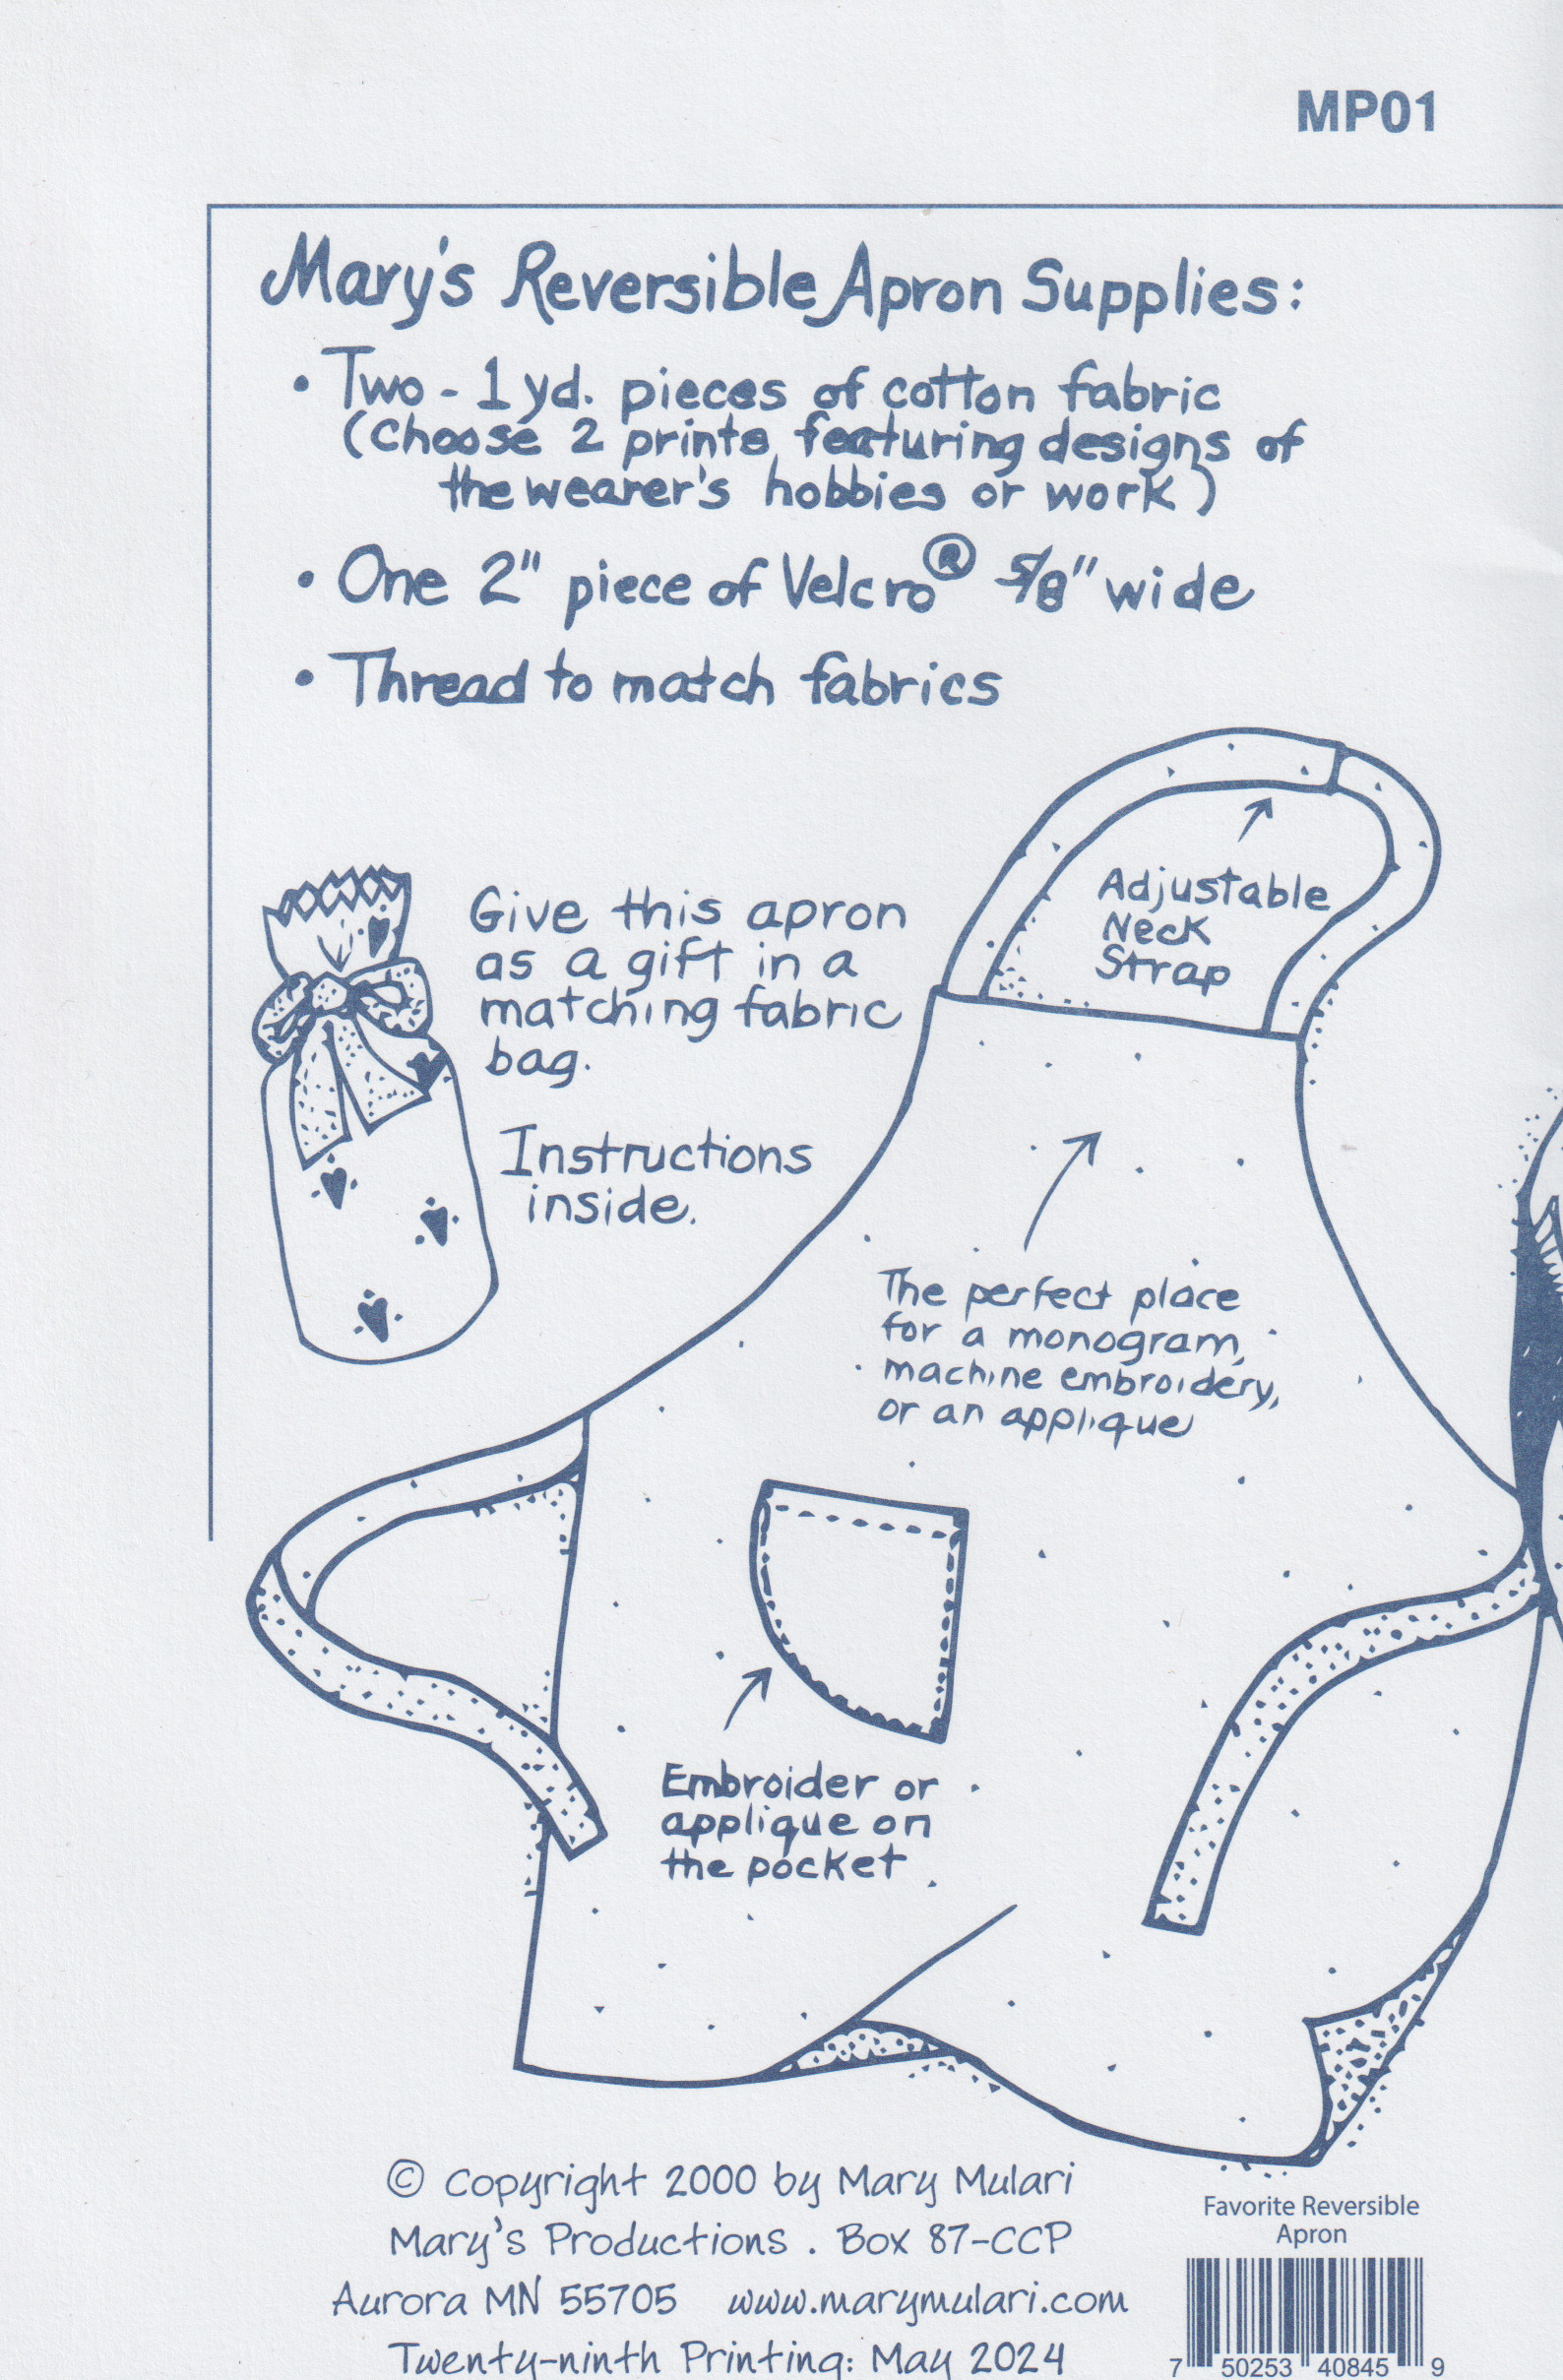 MP01
Mary's Reversible Apron Supplies:
• Two - 1 yd. pieces of cotton fabric
(Choose 2 prints featuring designs of
the wearer's hobbies or work)
• One 2" piece of Velcro® 5/8" wide
• Thread to match fabrics
Adjustable
Neck
Strap
Give this apron
as a gift in a
matching fabric
bag.
Instructions
inside.
The perfect place
for a monogram,
machine embroidery,
or an applique
Embroider or
applique on
the pocket
© Copyright 2000 by Mary Mulari
Mary's Productions . Box 87-CCP
Aurora MN 55705 www.marymulari.com
Twenty-ninth Printing: May 2024
Favorite Reversible
Apron
7 50253 40845 9